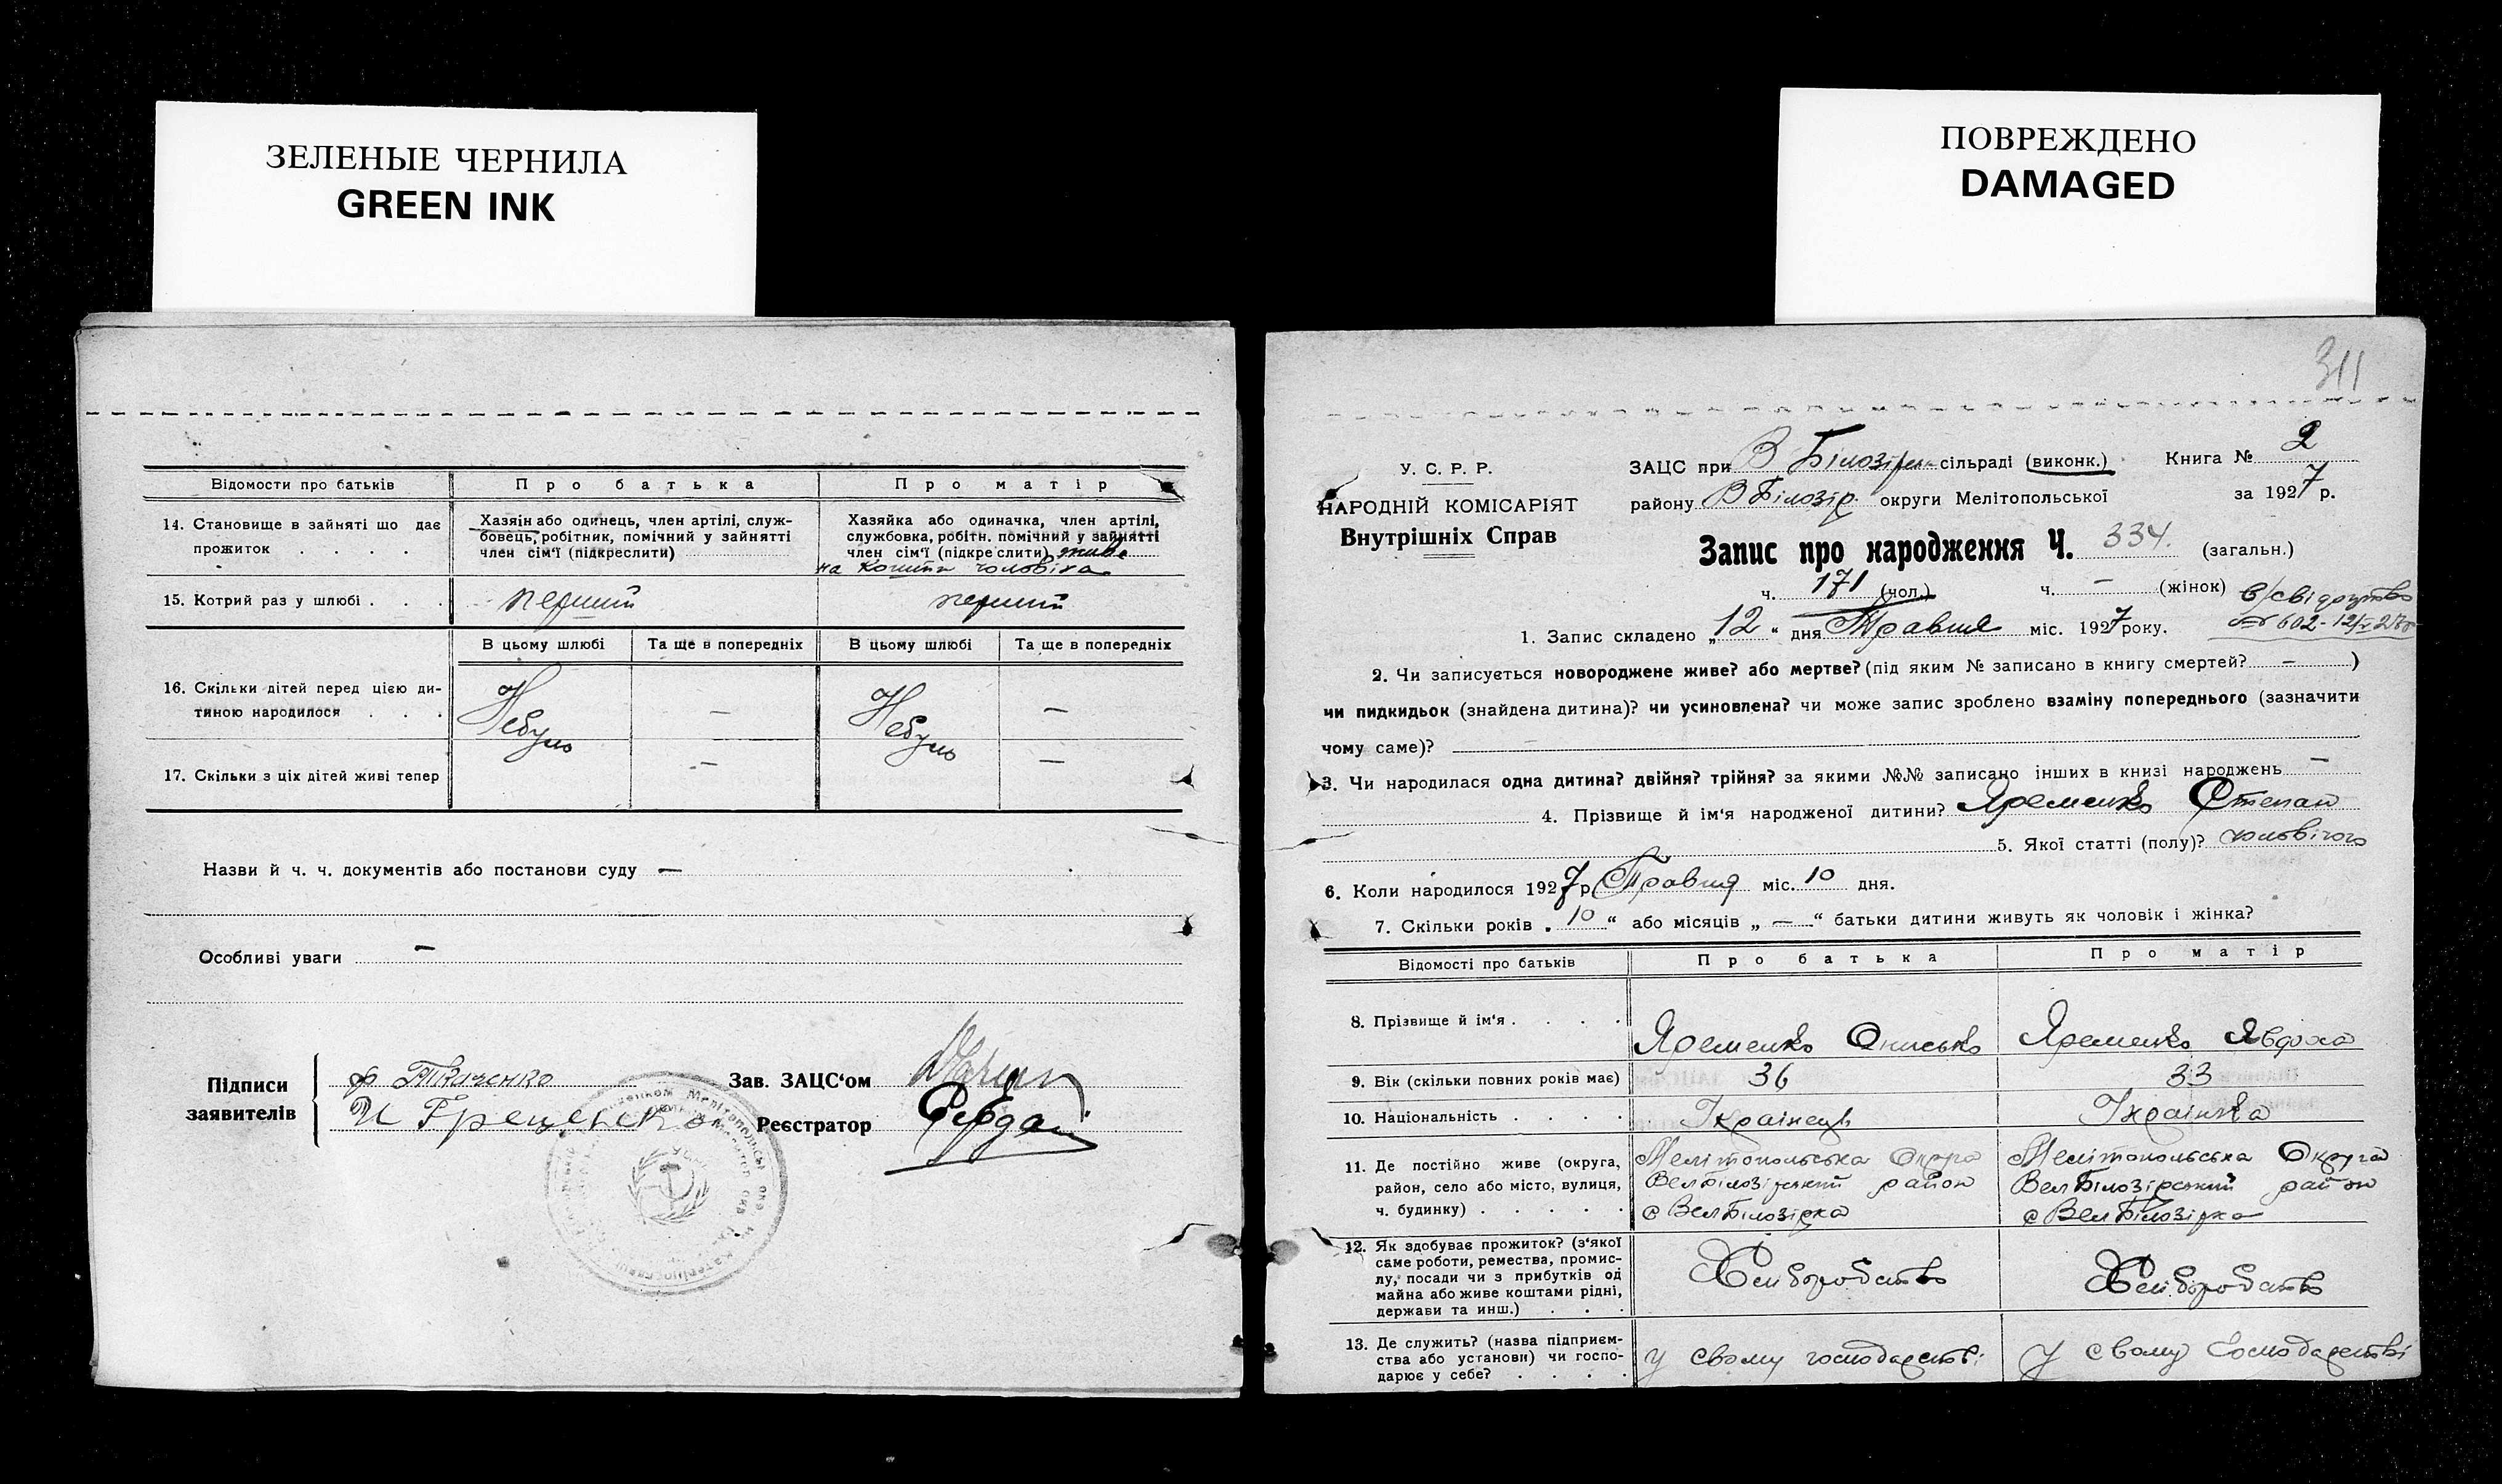 ЗЕЛЕНЫЕ ЧЕРНИЛА
GREEN INK
ПОВРЕЖДЕНО
DAMAGED
Відомости про батьків
Про батька
Про матір
14. Становище в зайняті що дає прожиток . . . .
Хазяін або одинець, член артілі, служ-
бовець, робітник, помічний у зайнятті
член сім'ї (підкреслити)
Хазяйка або одиначка, член артілі,
службовка, робітн. помічний у зайнятті
член сім'ї (підкреслити) живе
на кошти чоловіка
15. Котрий раз у шлюбі . . .
перший
перший
В цьому шлюбі
Та ще в попередніх
В цьому шлюбі
Та ще в попередніх
16. Скільки дітей перед цією ди-
тиною народилося . . .
Небуло
—
Небуло
—
17. Скільки з ціх дітей живі тепер
—
—
Назви й ч. ч. документів або постанови суду —
Особливі уваги —
Підписи
заявителів
Ф Ткаченко
И Грещенко
Зав. ЗАЦС'ом
Реєстратор
311
У. С. Р. Р.
НАРОДНІЙ КОМІСАРІЯТ
Внутрішніх Справ
ЗАЦС при В Білозірк сільраді (виконк.)
Книга № 2
району ВБілозір. округи Мелітопольської
за 1927 р.
Запис про народження Ч. 334. (загальн.)
ч. 171 (чол.) ч. — (жінок)
в/свідоцтво
№ 602 - 12/V 27р
1. Запис складено „12“ дня Травня міс. 1927 року.
2. Чи записується новороджене живе? або мертве? (під яким № записано в книгу смертей? — )
чи пидкидьок (знайдена дитина)? чи усиновлена? чи може запис зроблено взаміну попереднього (зазначити
чому саме)?
3. Чи народилася одна дитина? двійня? трійня? за якими №№ записано інших в книзі народжень —
4. Прізвище й ім'я народженої дитини? Яременко Степан
5. Якої статті (полу)? чоловічого
6. Коли народилося 1927 р. Травня міс. 10 дня.
7. Скільки років „10“ або місяців „—“ батьки дитини живуть як чоловік і жінка?
Відомості про батьків
Про батька
Про матір
8. Прізвище й ім'я . . . .
Яременко Онисько
Яременко Явдоха
9. Вік (скільки повних років має)
36
33
10. Національність . . . .
Українець
Українка
11. Де постійно живе (округа,
район, село або місто, вулиця,
ч. будинку) . . . . .
Мелітопольська Округа
ВелБілозірський район
с ВелБілозірка
Мелітопольська Округа
ВелБілозірський район
с ВелБілозірка
12. Як здобуває прожиток? (з'якої
саме роботи, ремества, промис-
лу, посади чи з прибутків од
майна або живе коштами рідні,
держави та инш.) . . .
Хліборобство
Хліборобство
13. Де служить? (назва підприєм-
ства або установи) чи госпо-
дарює у себе? . . . .
у свому господарстві
у свому господарстві